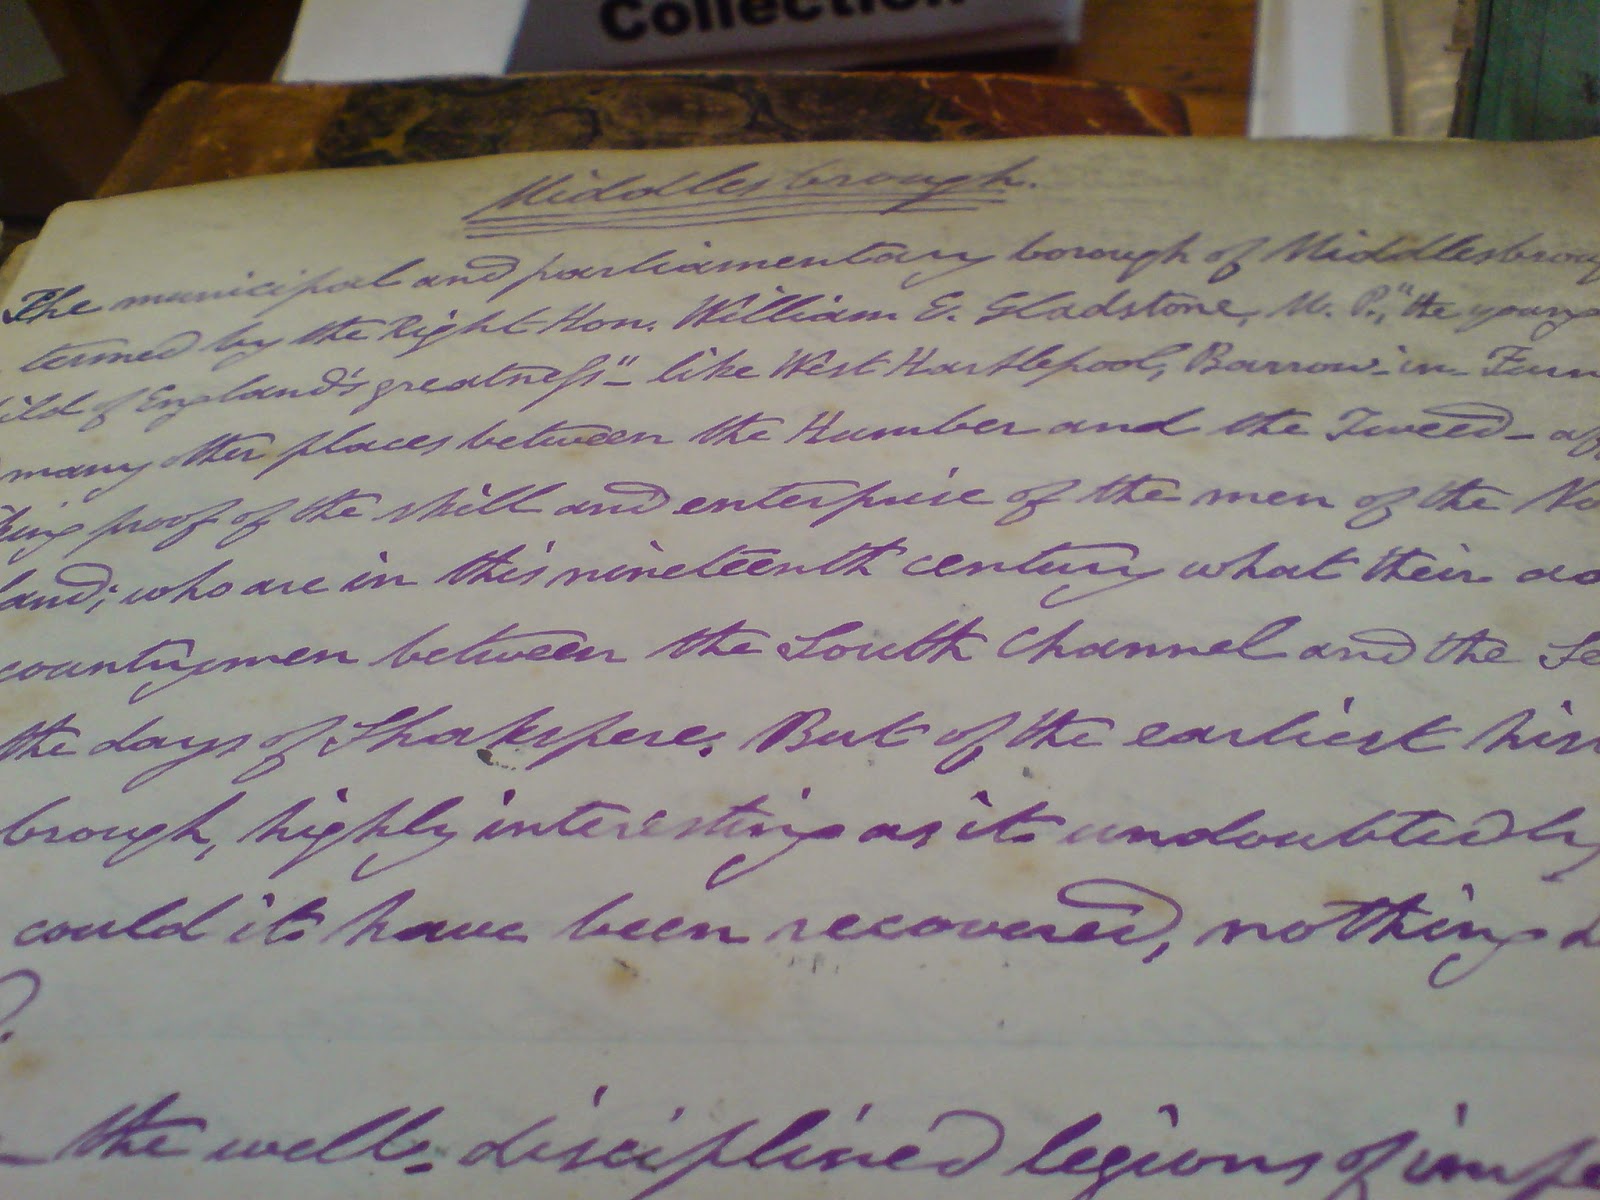 Collection
Middlesbrough.
The municipal and parliamentary borough of Middlesbroug
termed by the Right Hon. William E. Gladstone, M. P., "the young
ild of England's greatness" - like West Hartlepool, Barrow-in-Furn
many other places between the Humber and the Tweed - aff
king proof of the skill and enterprise of the men of the No
land; who are in this nineteenth century what their
countrymen between the South Channel and the Se
the days of Shakspere. But of the earliest his
brough, highly interesting as it undoubtedly
could it have been recovered, nothing
the well-disciplined legions of impe